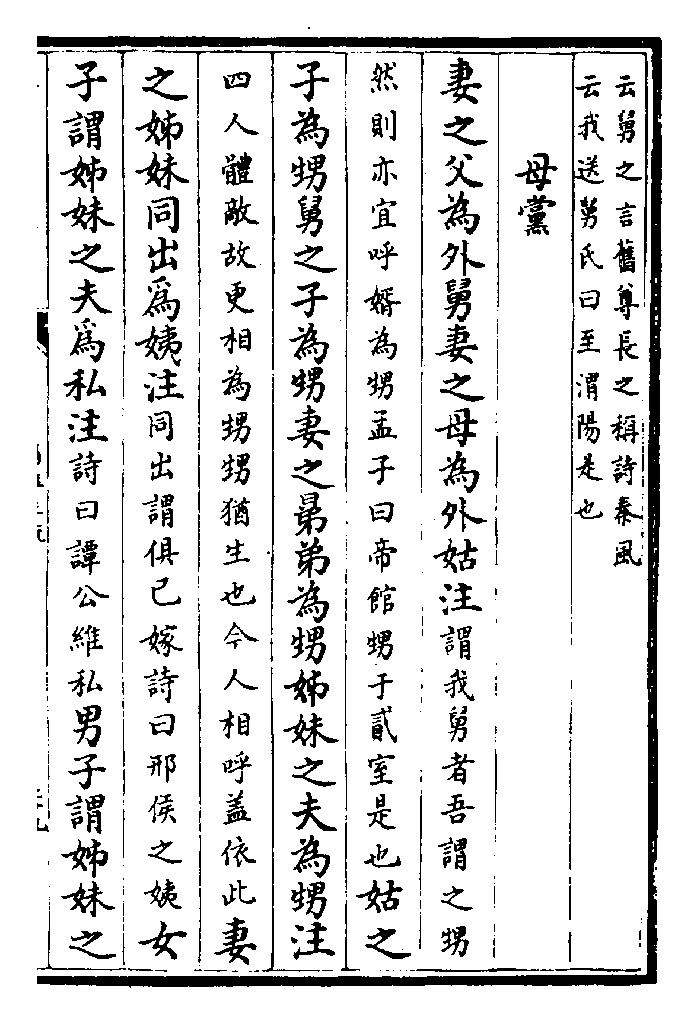 云舅之言舊尊長之稱詩秦風
云我送舅氏曰至渭陽是也
母黨
妻之父為外舅妻之母為外姑注謂我舅者吾謂之甥
然則亦宜呼婿為甥孟子曰帝館甥于貳室是也姑之
子為甥舅之子為甥妻之晜弟為甥姊妹之夫為甥注
四人體敵故更相為甥甥猶生也今人相呼盖依此妻
之姊妹同出爲姨注同出謂俱已嫁詩曰邢侯之姨女
子謂姊妹之夫爲私注詩曰譚公維私男子謂姊妹之